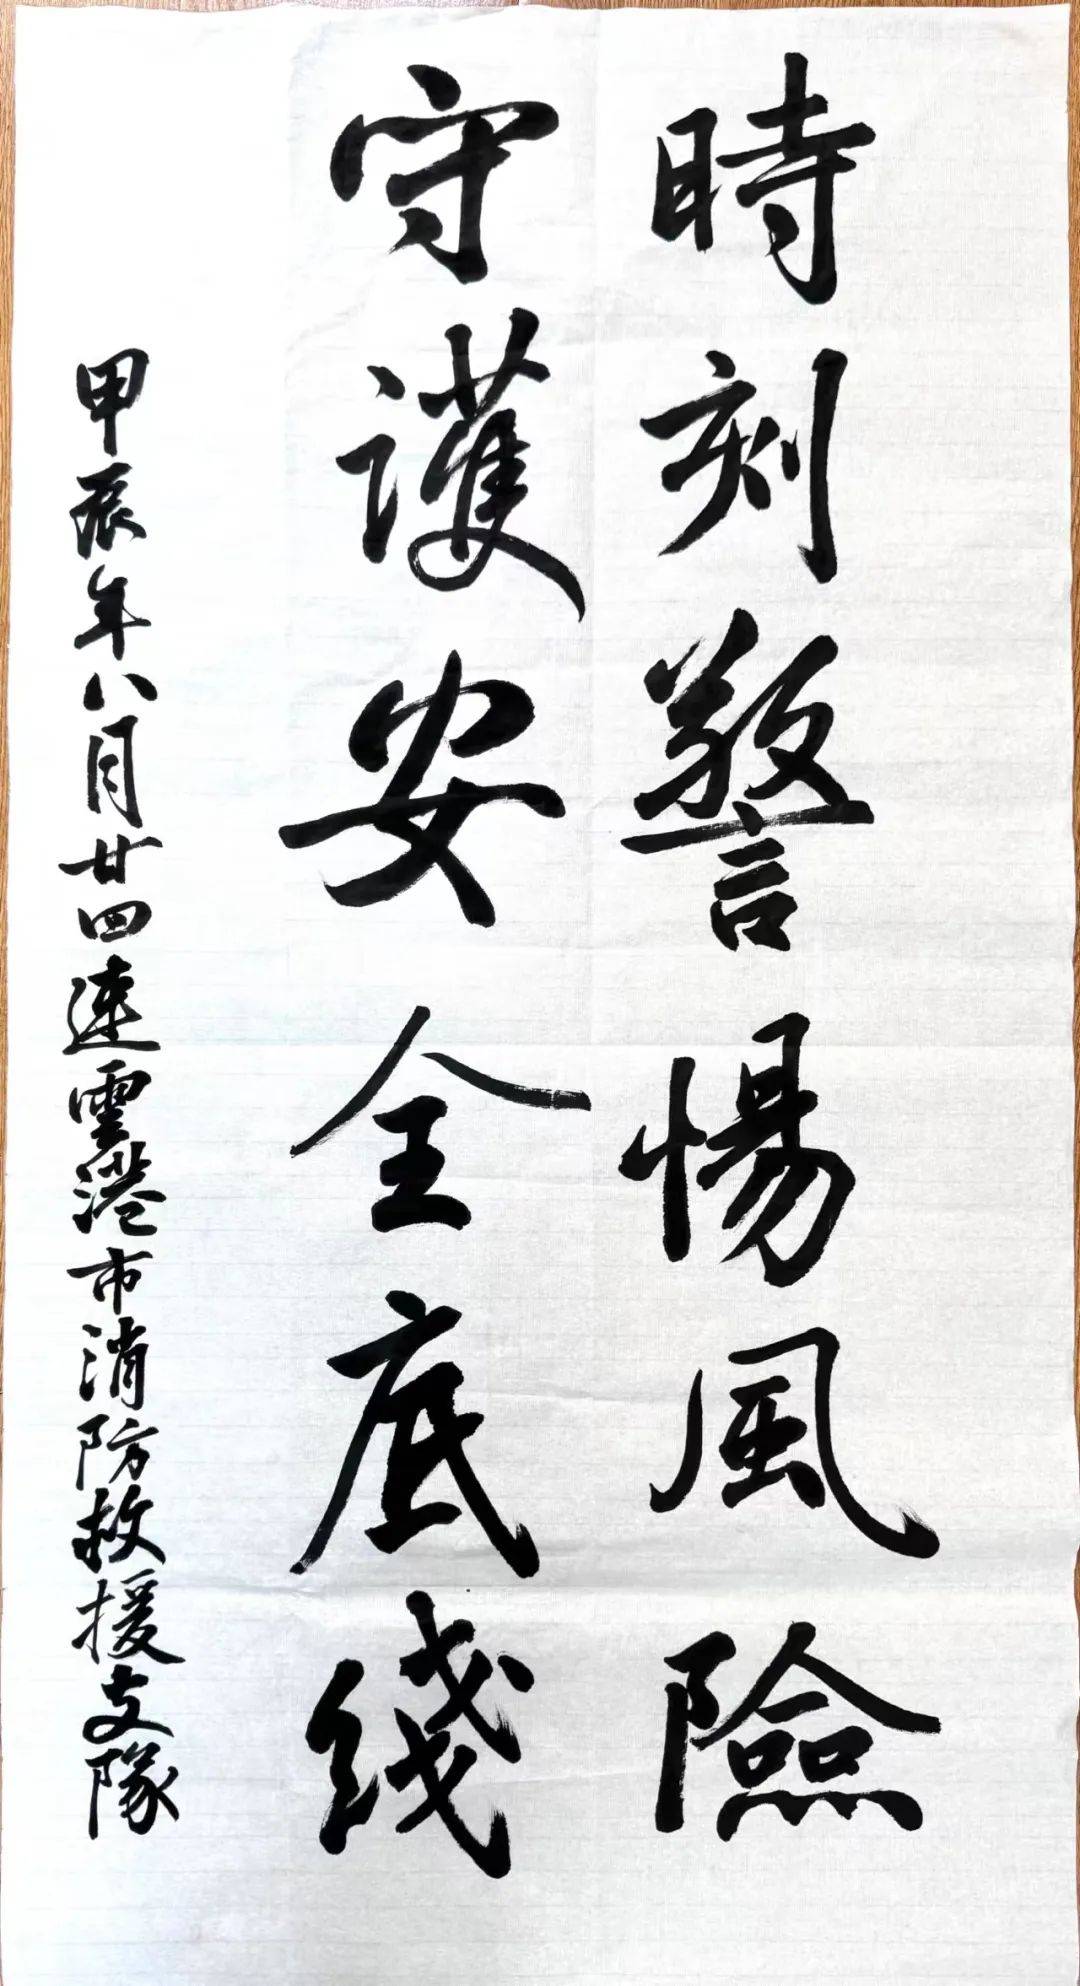 時刻警惕風險
守護安全底綫
甲辰年八月廿四連雲港市消防救援支隊